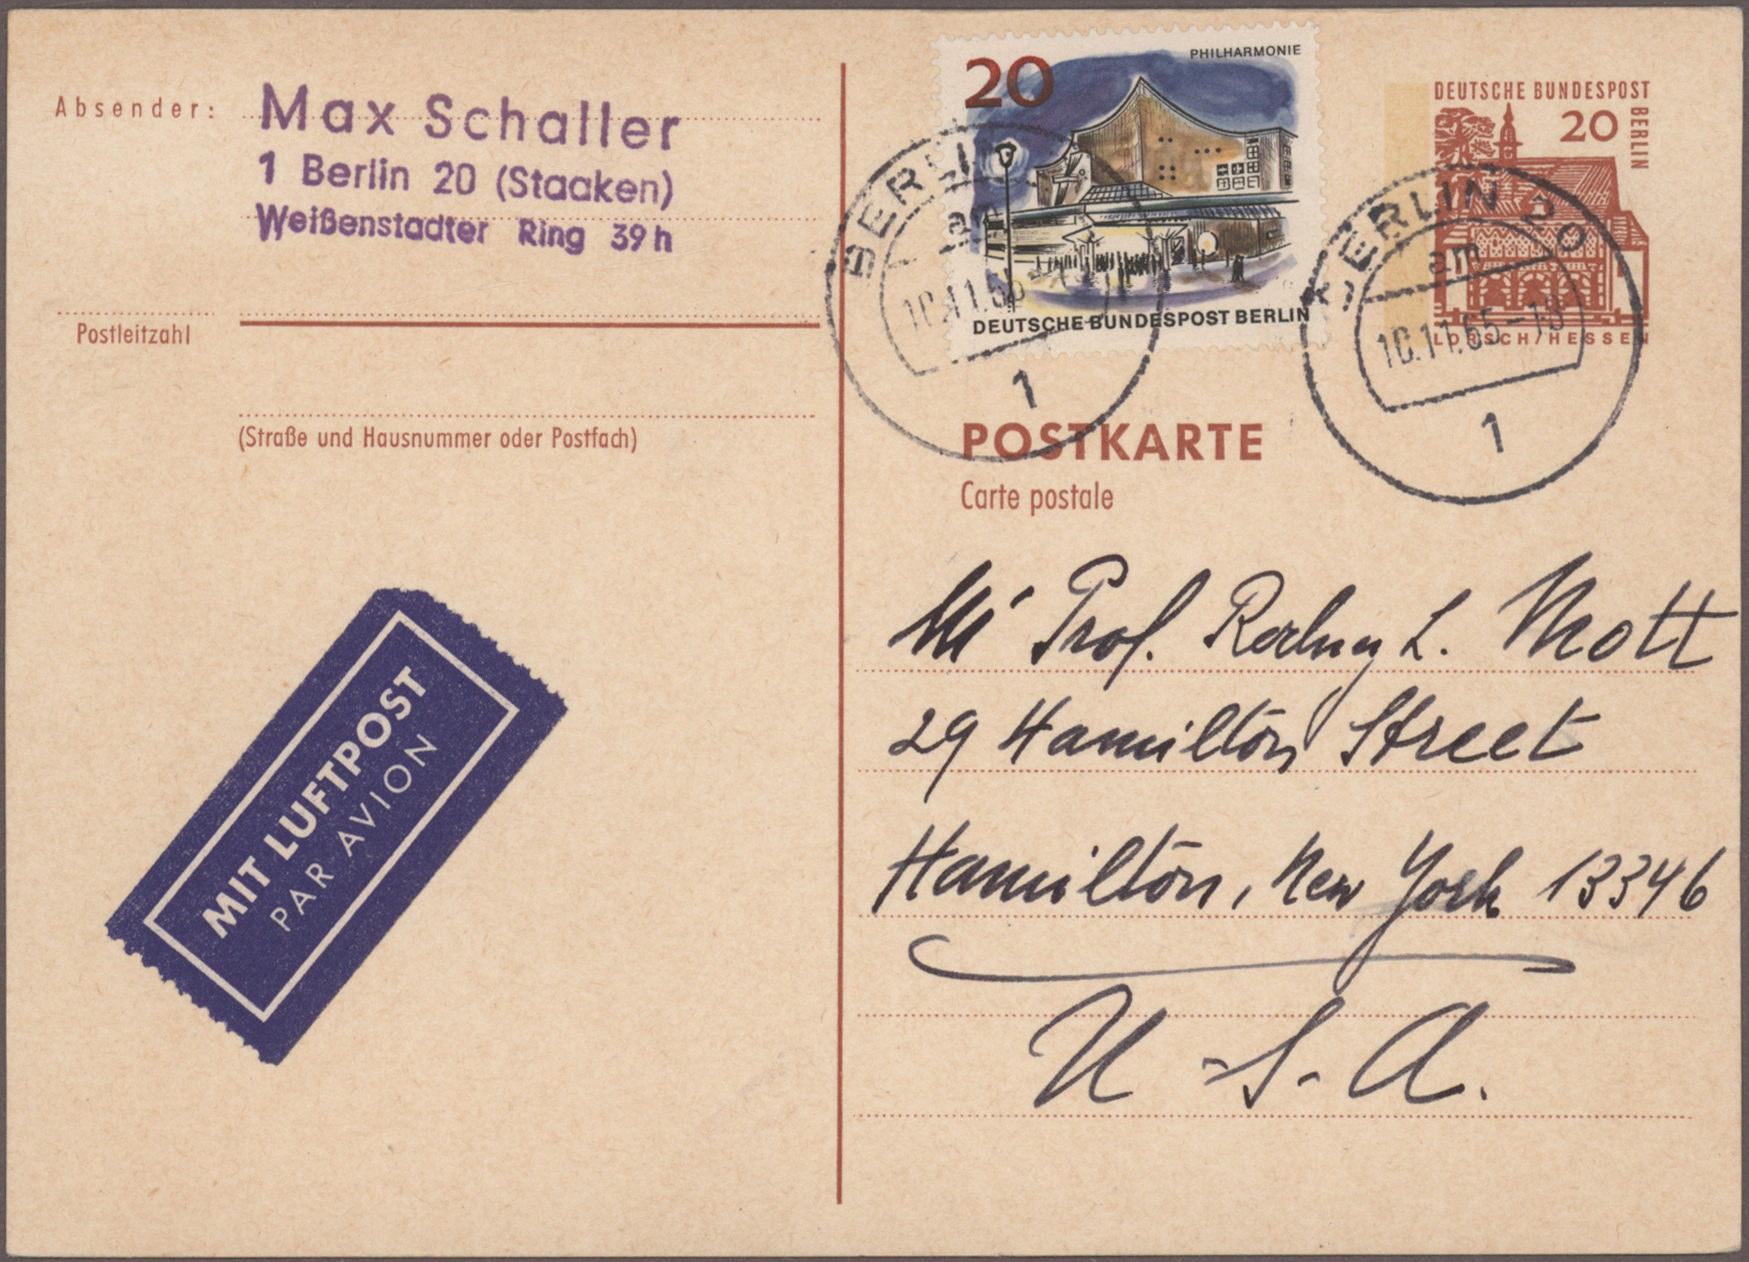 Absender:
Max Schaller
1 Berlin 20 (Staaken)
Weißenstadter Ring 39 h
Postleitzahl
(Straße und Hausnummer oder Postfach)
MIT LUFTPOST
PAR AVION
20
PHILHARMONIE
DEUTSCHE BUNDESPOST BERLIN
BERLIN
am
10.11.65
1
DEUTSCHE BUNDESPOST
BERLIN
20
LORSCH/HESSEN
BERLIN 20
am
10.11.65-18
1
POSTKARTE
Carte postale
Mr Prof. Rodney L. Mott
29 Hamilton Street
Hamilton, New York 13346
U.S.A.